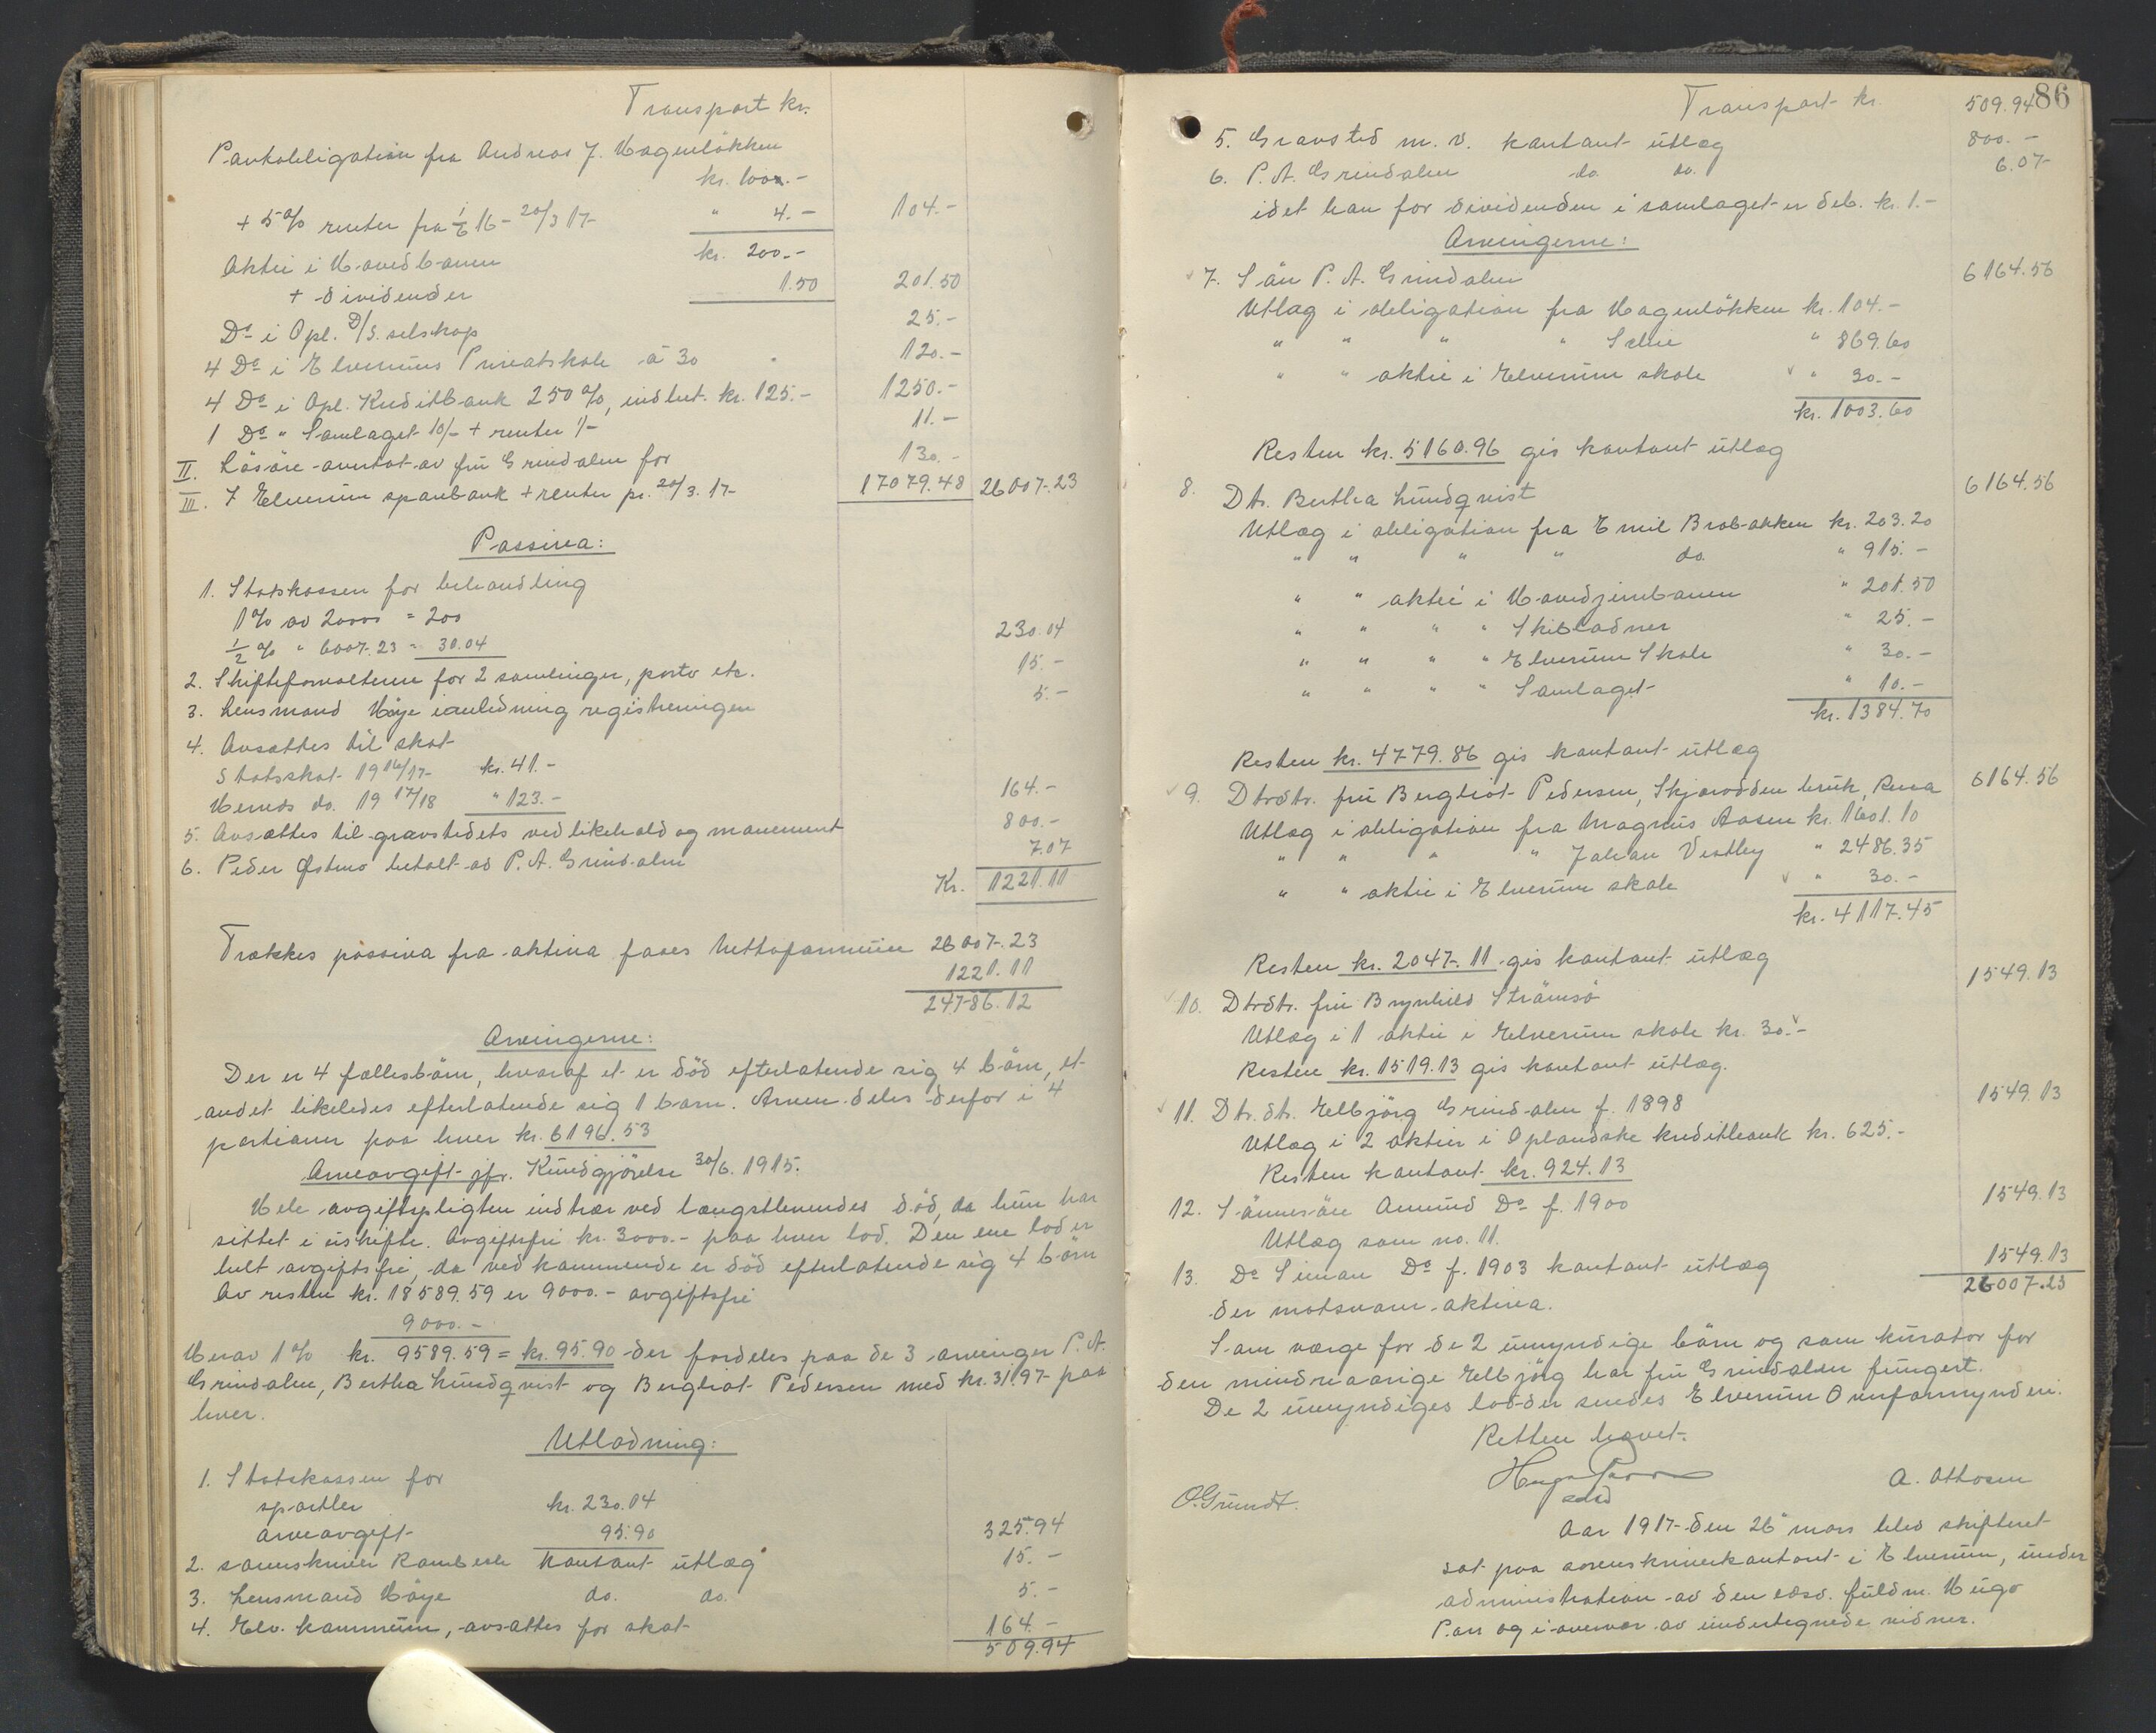 Transport kr.
Pantobligation fra Andreas J. Hagenløkken
kr. 100.-
+ 5% renter fra 1/6 16 - 20/3 17 " 4.- 104.-
Aktie i Hovedbanen kr. 200.-
+ dividender 1.50 201.50
Do i Opl. D/S. selskap 25.-
4 Do i Elverums Privatskole à 30 120.-
4 Do i Opl. Kreditbank 250%, indbet. kr. 125.- 1250.-
1 Do " Samlaget 10/- + renter 1/- 11.-
II. Løsøre avertat av fru Grindalen for 130.-
III. I Elverum sparebank + renter pr. 20/3. 17 17079.48 26007.23
Passiva:
1. Statskassen for behandling
1% av 20000 = 200
1/2 % " 6007.23 = 30.04 230.04
2. Skifteforvalteren for 2 samlinger, porto etc. 15.-
3. Lensmand Høye i anledning registreringen 5.-
4. Avsættes til skat
Statsskat 19 16/17 kr. 41.-
Herreds do. 19 17/18 " 123.- 164.-
5. Avsættes til gravstedets vedlikehold og monument 800.-
6. Peder Østmo betalt av P. A. Grindalen 7.07
Kr. 1221.11
Trækkes passiva fra aktiva faaes Nettoformuen 26007.23
1221.11
24786.12
Arvingerne:
Der er 4 fællesbørn, hvoraf et er død efterlatende sig 4 børn, et
andet likeledes efterlatende sig 1 barn. Arven deles derfor i 4
portioner paa hver kr. 6196.53
Arveavgift jfr. Kundgjørelse 30/6. 1915.
Hele avgiftspligten indtrær ved længstlevendes død, da hun har
sittet i uskifte. Avgiftsfri kr. 3000.- paa hver lod. Den ene lod er
helt avgiftsfri, da vedkommende er død efterlatende sig 4 børn
Av resten kr. 18589.59 er 9000.- avgiftsfri
9000.-
Herav 1% kr. 9589.59 = kr. 95.90 der fordeles paa de 3 arvinger P. A.
Grindalen, Bertha Lundqvist og Bergliot Pedersen med kr. 31.97 paa
hver.
Utlodning:
1. Statskassen for
sportler kr. 230.04
arveavgift 95.90 325.94
2. sorenskriver kontant utlæg 15.-
3. Lensmand Høye do. do. 5.-
4. Elv. kommune, avsættes for skat 164.-
509.94
86
Transport kr. 509.94
5. Gravsted m. v. kontant utlæg 800.-
6. P. A. Grindalen do. do. 6.07
idet han for dividenden i samlaget er deb. kr. 1.-
Arvingerne:
7. Søn P. A. Grindalen 6164.56
Utlæg i obligation fra Hagenløkken kr. 104.-
" " " " Schie " 869.60
" " aktie i Elverum skole " 30.-
kr. 1003.60
Resten kr. 5160.96 gis kontant utlæg
8. Dtr. Bertha Lundqvist 6164.56
Utlæg i obligation fra Emil Brobakken kr. 203.20
" " " " do. " 915.-
" " aktie i Hovedjernbanen " 201.50
" " " " Skibladner " 25.-
" " " " Elverum Skole " 30.-
" " " " Samlaget " 10.-
kr. 1384.70
Resten kr. 4779.86 gis kontant utlæg
9. Dtrdtr. fru Bergliot Pedersen, Skjærodden bruk, Rena 6164.56
Utlæg i obligation fra Magnus Aasen kr. 1601.10
" " " " Johan Vestby " 2486.35
" " aktie i Elverum skole " 30.-
kr. 4117.45
Resten kr. 2047.11 gis kontant utlæg
10. Dtrdtr. fru Brynhild Strømsø 1549.13
Utlæg i 1 aktie i Elverum skole kr. 30.-
Resten kr. 1519.13 gis kontant utlæg.
11. Dtr. dtr. Elbjørg Grindalen f. 1898 1549.13
Utlæg i 2 aktier i Oplandske kreditbank kr. 625.-
Resten kontant kr. 924.13
12. Sønnesøn Amund Do f. 1900 1549.13
Utlæg som no. 11.
13. Do Simen Do f. 1903 kontant utlæg 1549.13
26007.23
der motsvarer aktiva.
Som værge for de 2 umyndige børn og som kurator for
den mindreaarige Elbjørg har fru Grindalen fungert.
De 2 umyndiges lodder sendes Elverum Overformynderi.
Retten hævet.
Hugo Parr
edsv
O. Grundt. A. Ottosen
Aar 1917 den 26 mars blev skifteret
sat paa sorenskriverkontoret i Elverum, under
administration av den edsv. fuldm. Hugo
Parr og i overvær av undertegnede vidner.